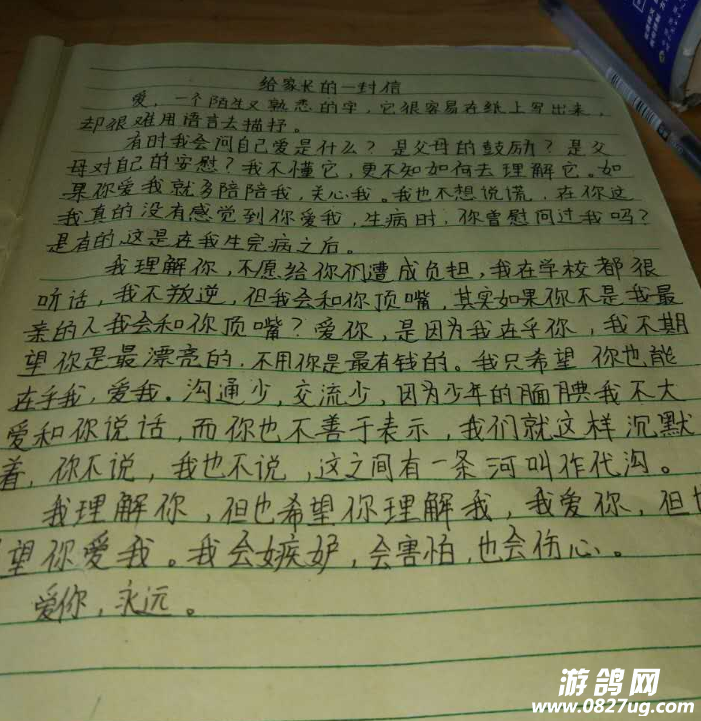 给家长的一封信
爱,一个陌生又熟悉的字,它很容易在纸上写出来,
却很难用语言去描抒。
有时我会问自己爱是什么?是父母的鼓励?是父
母对自己的安慰?我不懂它,更不知如何去理解它。如
果你爱我就多陪陪我,关心我。我也不想说谎,在你这
我真的没有感觉到你爱我,生病时,你曾慰问过我吗?
是有的,这是在我生完病之后。
我理解你,不愿给你们遭成负担,我在学校都很
听话,我不叛逆,但我会和你顶嘴,其实如果你不是我最
亲的人我会和你顶嘴?爱你,是因为我在乎你,我不期
望你是最漂亮的,不用你是最有钱的。我只希望你也能
在乎我,爱我。沟通少,交流少,因为少年的腼腆我不大
爱和你说话,而你也不善于表示,我们就这样沉默
着,你不说,我也不说,这之间有一条河叫作代沟。
我理解你,但也希望你理解我,我爱你,但也
望你爱我。我会嫉妒,会害怕,也会伤心。
爱你,永远。
游鸽网
www.0827ug.com